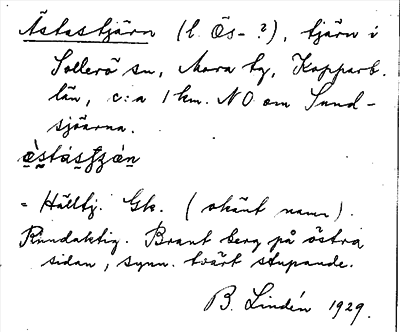 Ästastjärn (l. Ös- ?), tjärn i
Sollerö sn, Mora tg, Kopparb.
län, c:a 1 km. NO om Sand-
sjöarna.
= Hälltj. Gk. (okänt namn).
Rundaktig. Brant berg på östra
sidan, synn. tvärt stupande.
B. Lindén 1929.